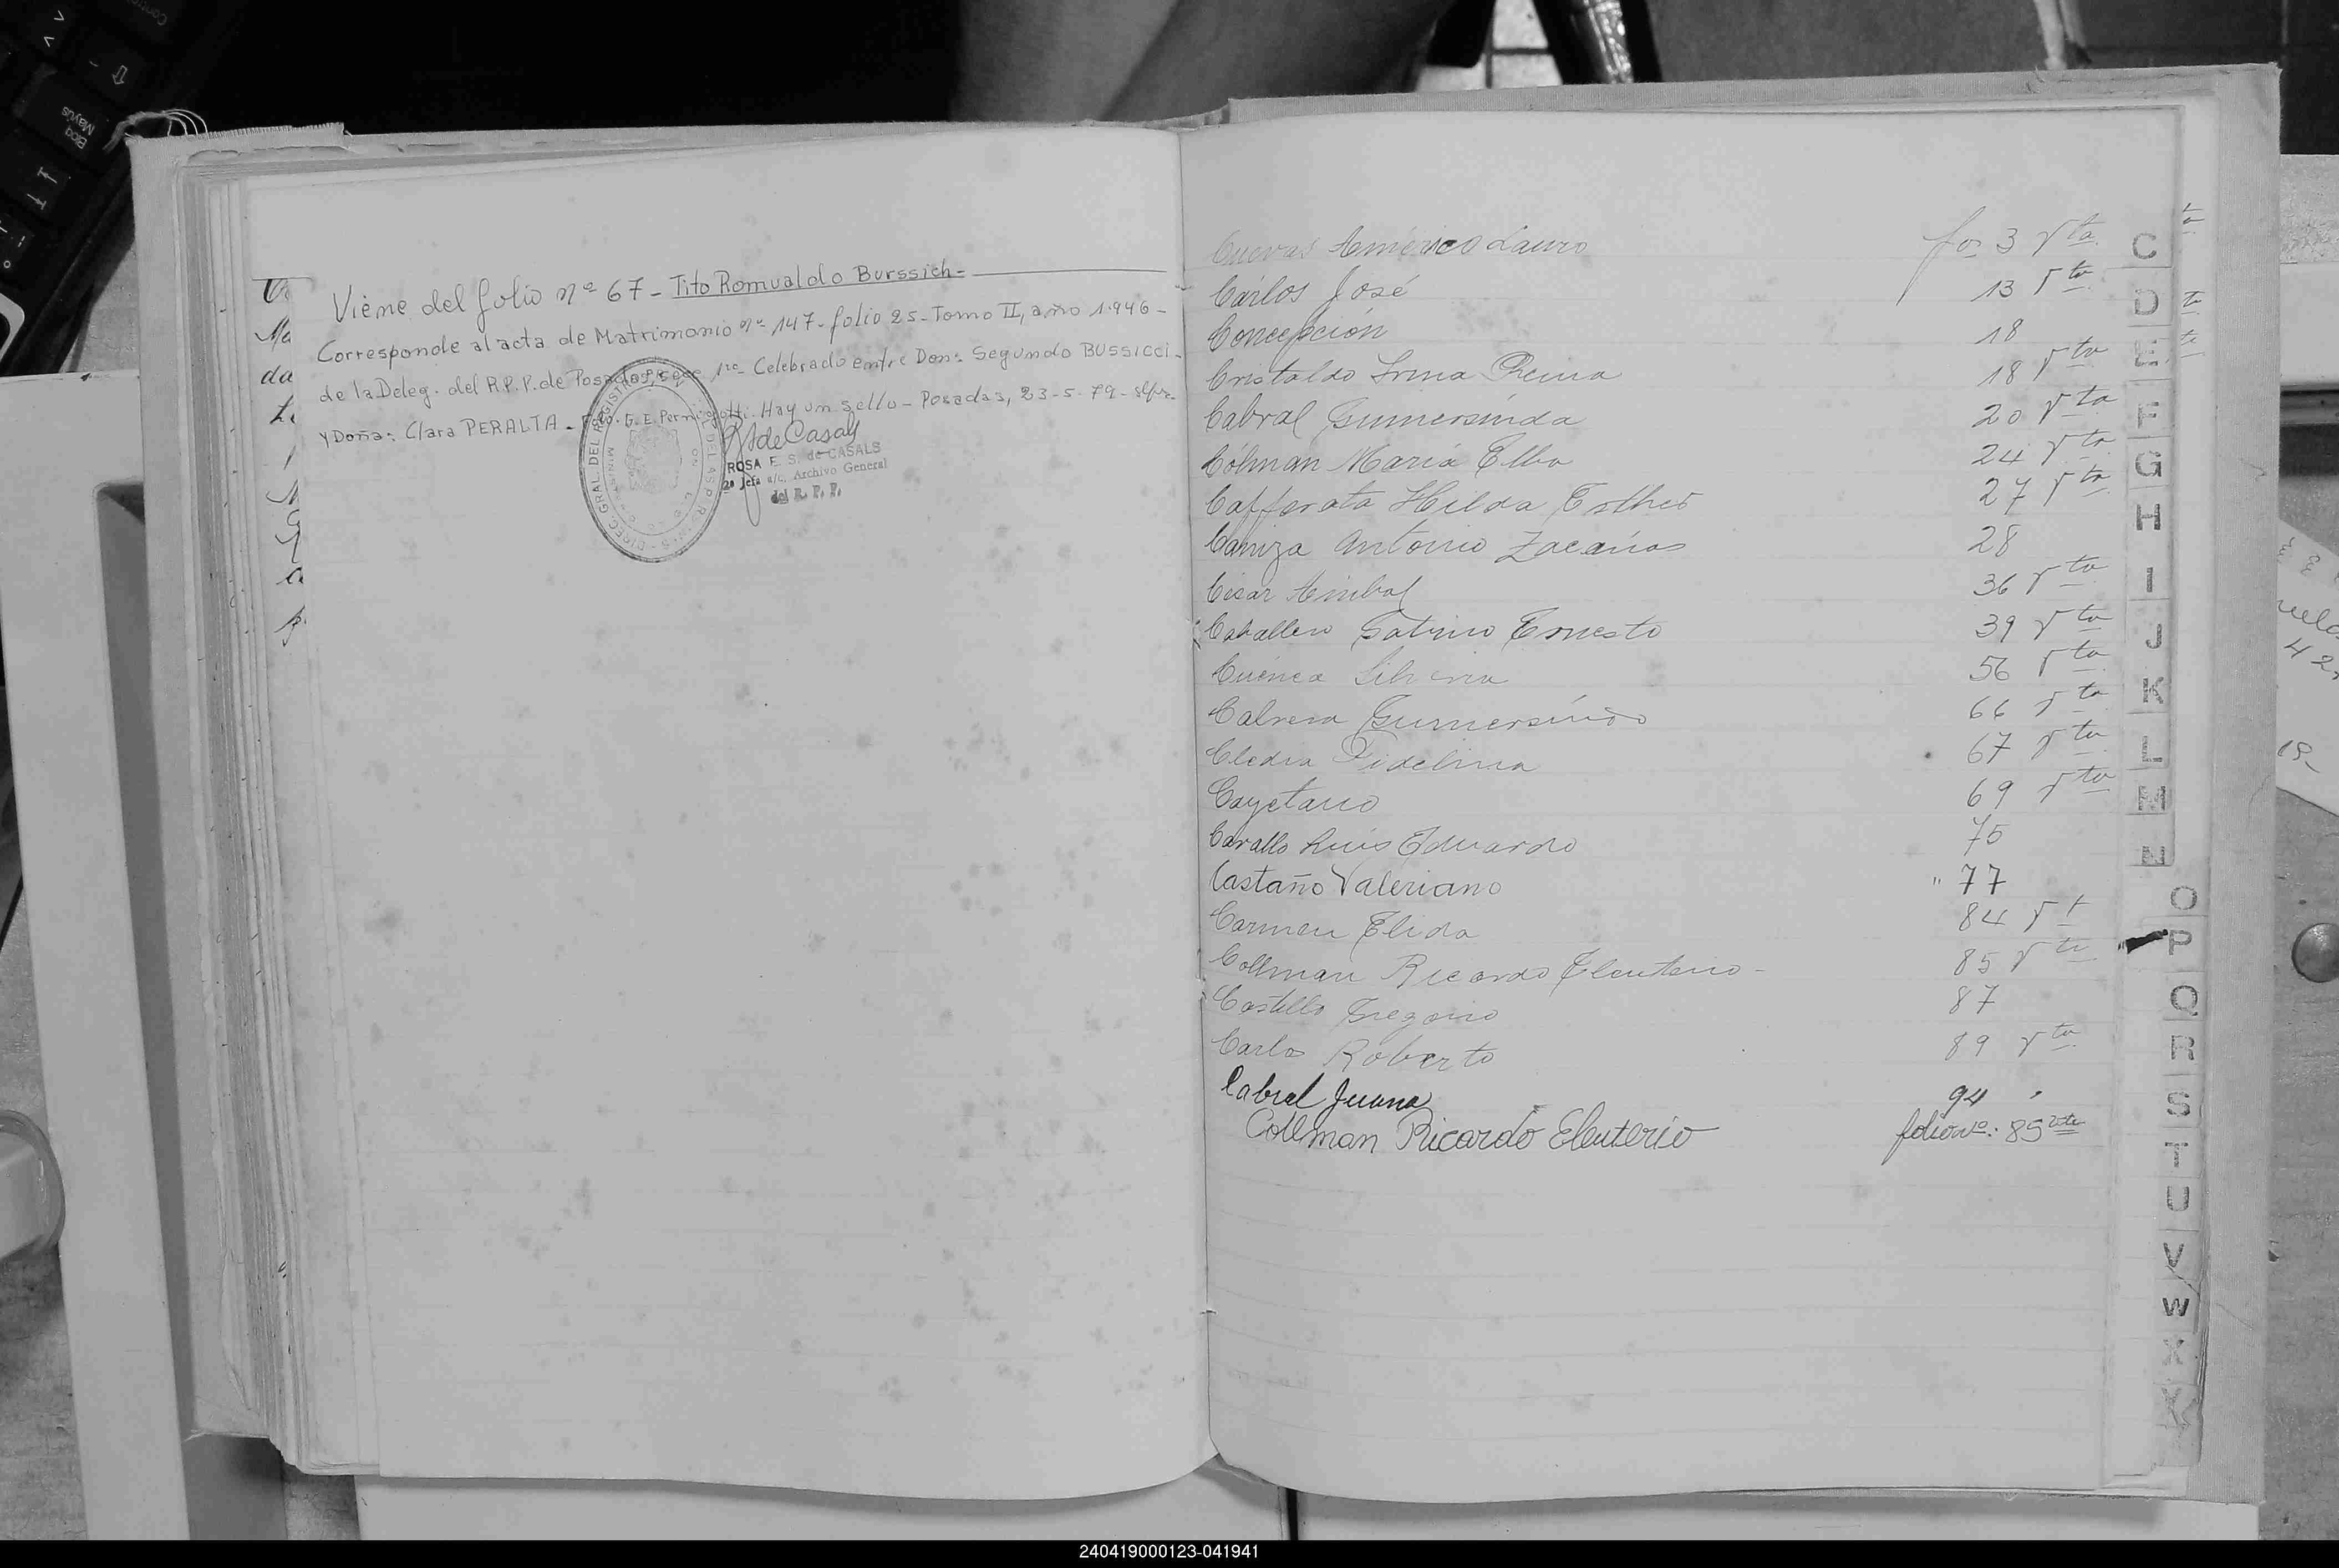 Viene del folio nº 67 - Tito Romualdo Burssich -
Corresponde al acta de Matrimonio nº 147 - folio 25 - Tomo II, año 1.946 -
de la Deleg. del R.P.P. de Posadas, secc 1ra - Celebrado entre Don: Segundo BUSSICCI -
y Doña: Clara PERALTA - Fdo. G. E. Hay un sello - Posadas, 23-5-79 -
ROSA E. S. de CASALS
2ª Jefa a/c. Archivo General
del R. P. P.
DIREC. GRAL. DEL REGISTRO
Cuevas Américo Lauro fo: 3 Vta
Cárlos José 13 Vta
Concepción 18
Cristaldo Irma Reina 18 Vta
Cabral Gumersinda 20 Vta
Cólman María Elba 24 Vta
Cafferata Hilda Esther 27 Vta
Caniza Antonio Zacarías 28
César Anibal 36 Vta
Caballero Ernesto 39 Vta
Cuenca Silveria 56 Vta
Cabrera Gumersindo 66 Vta
Cledia Fidelina 67 Vta
Cayetano 69 Vta
Carallo Luis Eduardo 75
Castaño Valeriano " 77
Carmen Elida 84 Vt
Collman Ricardo Eleuterio - 85 Vta
Castillo Gregorio 87
Carlos Roberto 89 Vta
Cabral Juana 94
Collman Ricardo Eleuterio folio nº: 85 vta
C
D
E
F
G
H
I
J
K
L
M
N
O
P
Q
R
S
T
U
V
W
X
Y
240419000123-041941